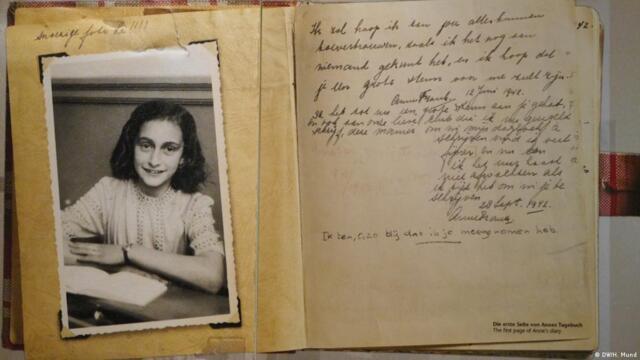 snoezige foto hè!!!!
Ik zal hoop ik aan jou alles kunnen
toevertrouwen, zoals ik het nog aan
niemand gekund heb, en ik hoop dat
je een grote steun voor me zult zijn.
Anne Frank. 12 Juni 1942.
Ik heb tot nu een grote steun aan je gehad,
en ook aan onze lieve club die ik nu geregeld
schrijf, deze manier om in mijn dagboek te
schrijven vind ik veel
fijner en nu kan
ik het uur haast
niet afwachten als
ik tijd heb om in je te
schrijven.
28 Sept. 1942.
Anne Frank.
Ik ben, o, zo blij dat ik je meegenomen heb.
Die erste Seite von Annes Tagebuch
The first page of Anne's diary
© DW/H. Mund